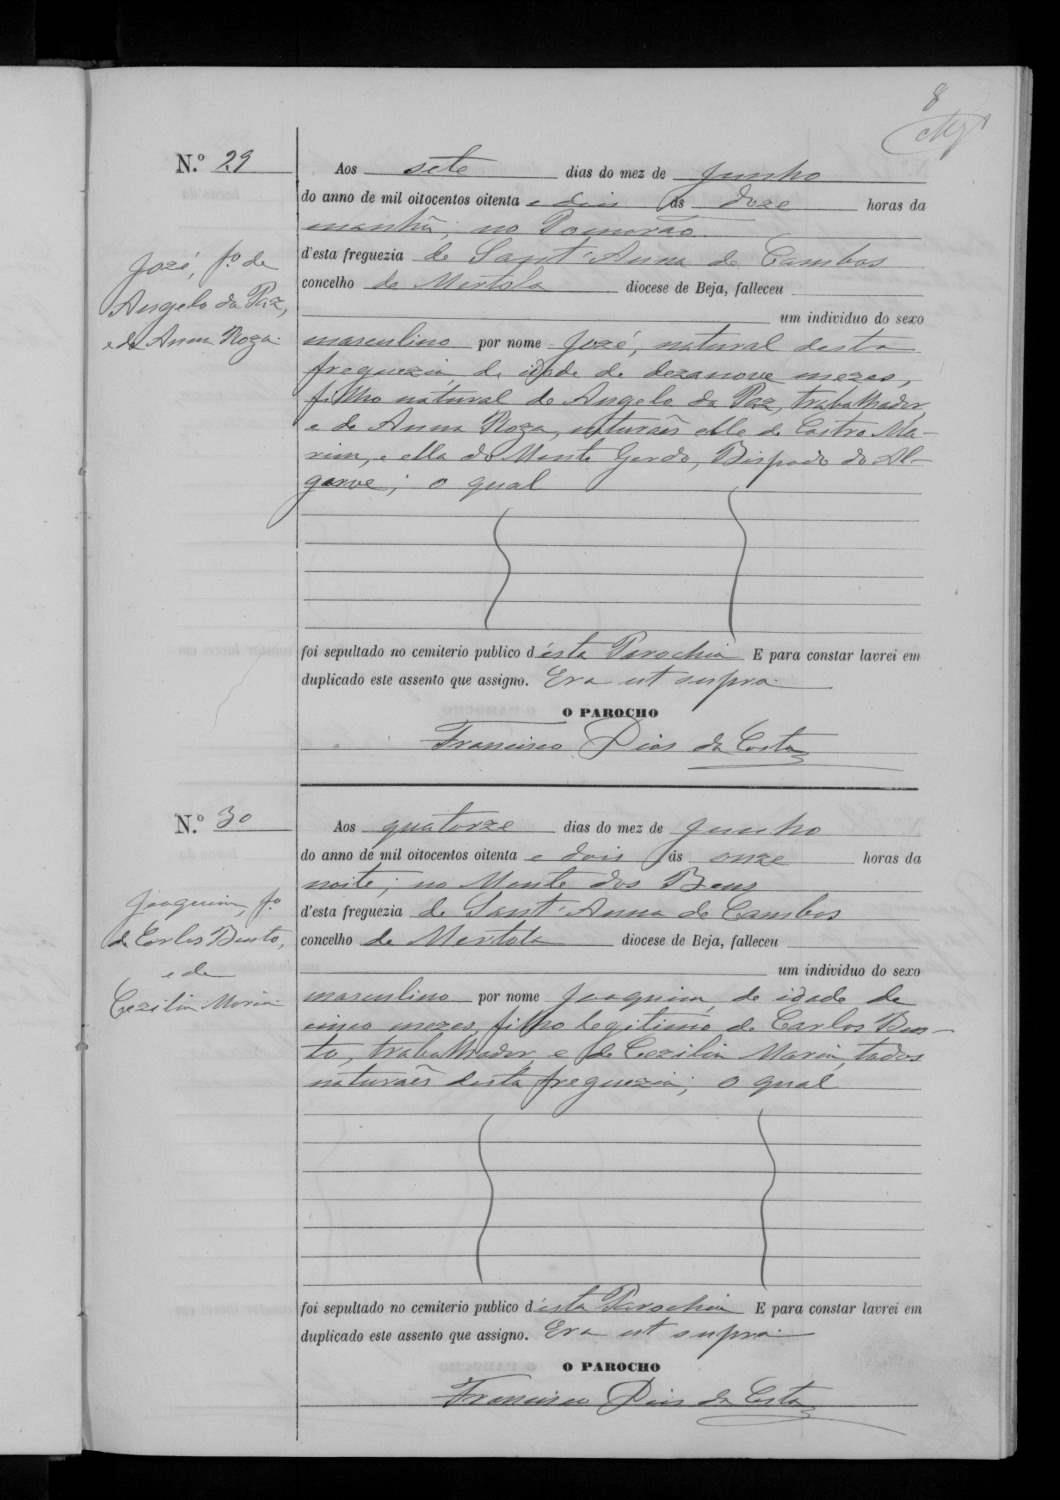 8
N.º 29
Aos sete dias do mez de Junho
do anno de mil oitocentos oitenta e dois ás doze horas da
manhã; no Pomarão
d'esta freguezia de Sant'Anna de Cambas
concelho de Mertola diocese de Beja, falleceu
um individuo do sexo
masculino por nome Jozé, natural desta
freguezia, de idade de dezanove mezes,
filho natural de Angelo da Paz, trabalhador,
e de Anna Roza, naturaes elle de Castro Ma-
rim, e ella do Monte Gordo, Bispado do Al-
garve; o qual
foi sepultado no cemiterio publico d'esta Parochia E para constar lavrei em
duplicado este assento que assigno. Era ut supra.
O PAROCHO
Francisco Dias da Costa
Jozé, fº de
Angelo da Paz,
e de Anna Roza.
N.º 30
Aos quatorze dias do mez de Junho
do anno de mil oitocentos oitenta e dois ás onze horas da
noite; no Monte dos Bens
d'esta freguezia de Sant'Anna de Cambas
concelho de Mertola diocese de Beja, falleceu
um individuo do sexo
masculino por nome Joaquim, de idade de
cinco mezes, filho legitimo de Carlos Ben-
to, trabalhador, e de Cezilia Maria, todos
naturaes desta freguezia; o qual
foi sepultado no cemiterio publico d'esta Parochia E para constar lavrei em
duplicado este assento que assigno. Era ut supra.
O PAROCHO
Francisco Dias da Costa
Joaquim, fº
de Carlos Bento,
e de
Cezilia Maria.